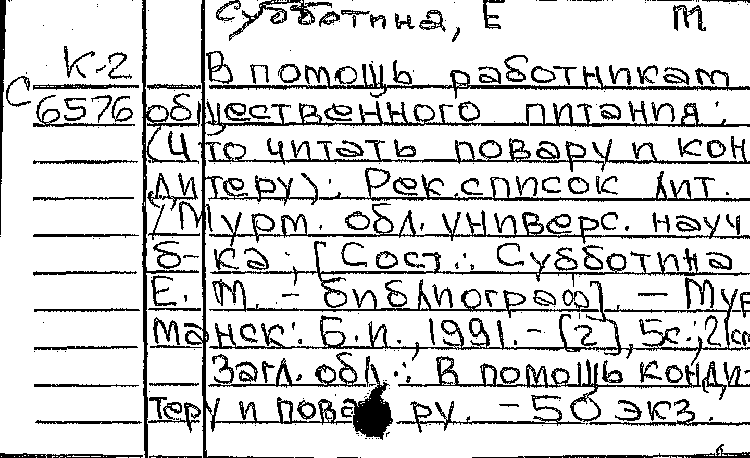 Субботина, Е М
К-2 В помощь работникам
С 6576 общественного питания:
(Что читать повару и кон
дитеру): Рек.список лит.
/Мурм. обл. универс. науч
б-ка; [Сост.: Субботина
Е. М. - библиограф]. — Мур
манск: Б.и., 1991. - [2], 5с.; 21см
Загл. обл.: В помощь конди-
теру и повару. - 50 экз.